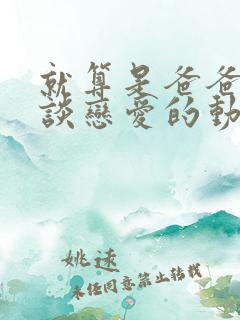 就算是爸爸
談戀愛的動
姚逑
未经同意禁止转载